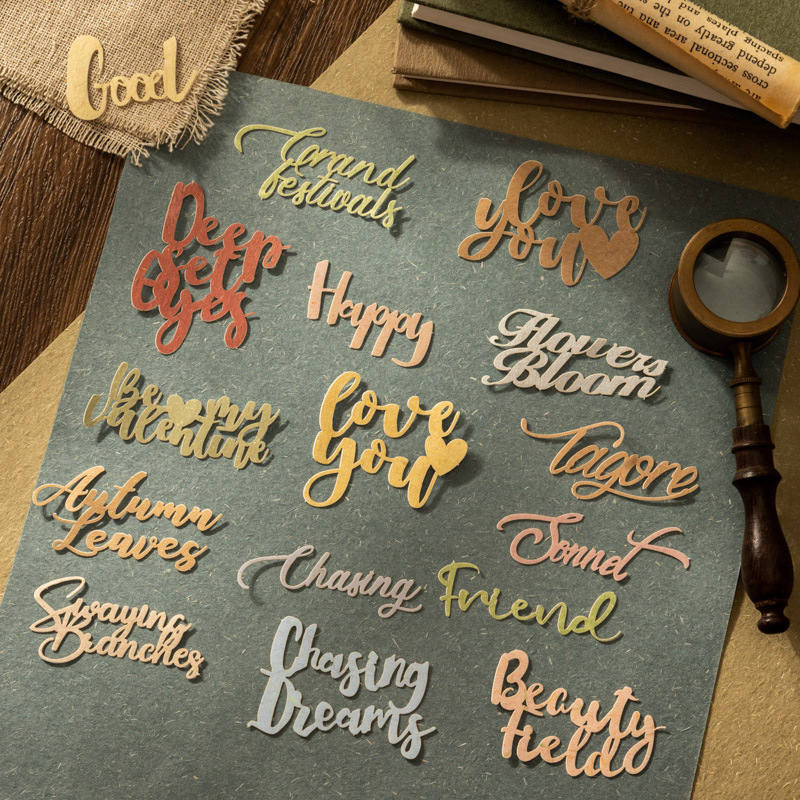 Good
are and
cross sectional area and the
depend greatly on the
spacing plates
Grand
festivals
I love
you
Deep
Set
Eyes
Happy
Flowers
Bloom
Be my
Valentine
love
you
Tagore
Autumn
Leaves
Sonnet
Chasing
Friend
Swaying
Branches
Chasing
Dreams
Beauty
Field